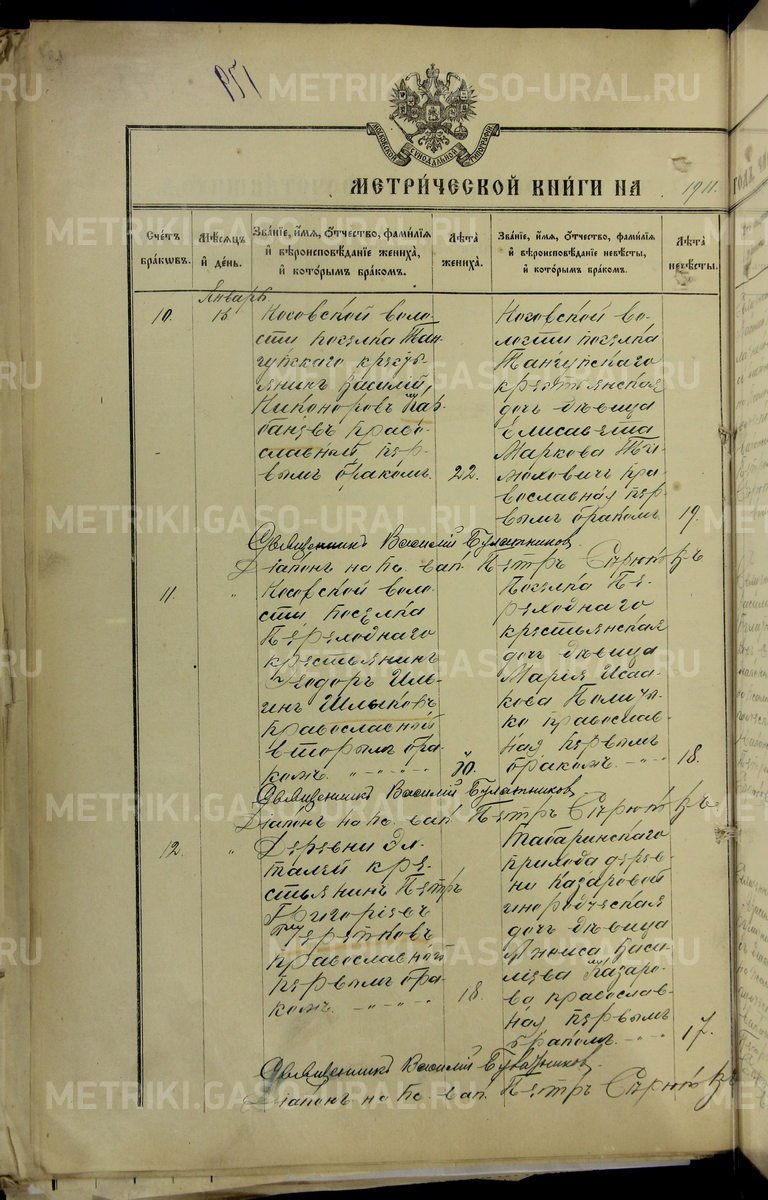 МОСКОВСКОЙ СѴНОДАЛЬНОЙ ТИПОГРАФИИ
МЕТРИ́ЧЕСКОЙ КНИ́ГИ НА 1911.
Сче́тъ бра́кѡвъ.
Мѣ́сѧцъ и҆ де́нь.
Зва́нїе, и҆́мѧ, ѻ҆́тчество, фамі́лїѧ
и҆ вѣроисповѣ́данїе жениха̀,
и҆ кото́рымъ бра́комъ.
Лѣ́та жениха̀.
Зва́нїе, и҆́мѧ, ѻ҆́тчество, фамі́лїѧ
и҆ вѣроисповѣ́данїе невѣ́сты,
и҆ кото́рымъ бра́комъ.
Лѣ́та невѣ́сты.
Январь
10.
Носовской воло-
сти поселка Тан-
гупскаго кресть-
янинъ Василій,
Никоноровъ
православный пер-
вымъ бракомъ.
22.
Носовской во-
лости поселка
Тангупскаго
крестьянская
дочь дѣвица
Елисавета
Маркова Ти-
моховичъ пра-
вославная пер-
вымъ бракомъ
19.
Священникъ Василій Булатников
Діаконъ на пс. вак. Петръ
11.
"
Носовской воло-
сти поселка
Переходнаго
крестьянинъ
Ѳеодоръ Иль-
инъ Шлыковъ
православный
вторымъ бра-
комъ. " - " - " - " -
30.
Поселка Пе-
реходнаго
крестьянская
дочь дѣвица
Марія Исаа-
кова
православ-
ная первымъ
бракомъ. - " - "
18.
Священникъ Василій Булатников
Діаконъ на пс. вак. Петръ
12.
"
Деревни
крестьянинъ Петръ
Григоріевъ
православный
первымъ бра-
комъ. - " - " - " -
18.
Табаринскаго
прихода дерев-
ни Казаровой
инородческая
дочь дѣвица
Анисіа Васи-
лиева Казаро-
ва православ-
ная первымъ
бракомъ. - " - "
17.
Священникъ Василій Булатников
Діаконъ на пс. вак. Петръ
METRIKI.GASO-URAL.RU